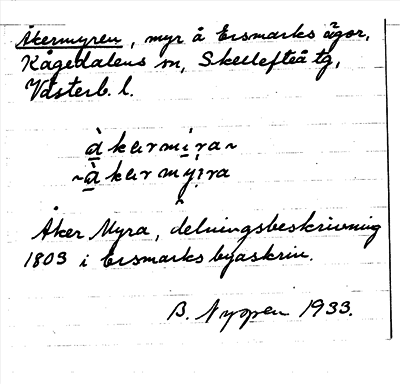 Åkermyren, myr å Ersmarks ägor,
Kågedalens sn, Skellefteå tg,
Västerb. l.
àkɐrmi̱ra~
~àkɐrmyi̱ra
Åker Myra, delningsbeskrivning
1803 i Ersmarks byaskrin.
B. Nygren 1933.